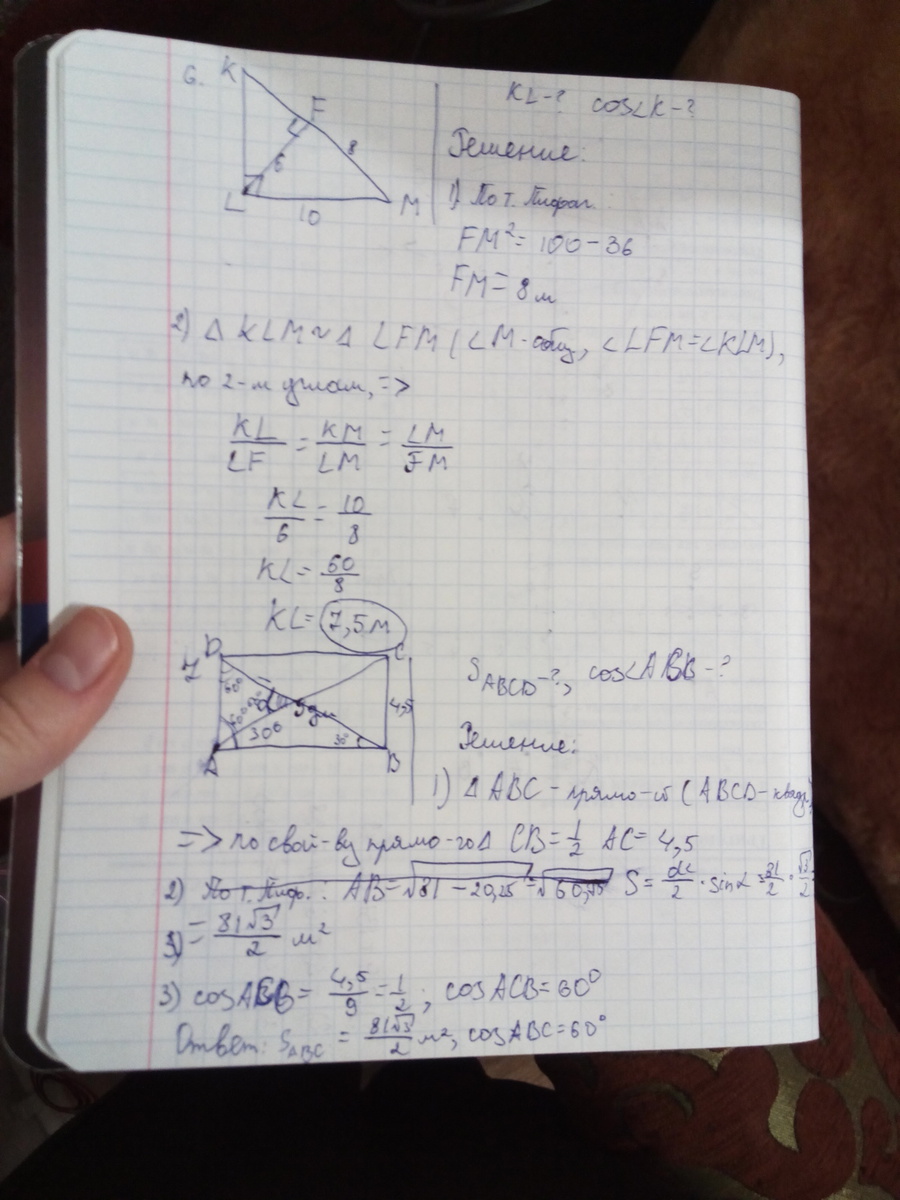 6.
K
F
8
6
L
10
M
KL-? cos∠K-?
Решение:
1) По т. Пифаг.
FM² = 100 - 36
FM = 8 м
2) △ KLM ~ △ LFM (∠M-общ, ∠LFM=∠KLM),
по 2-м углам, =>
KL/LF = KM/LM = LM/FM
KL/6 = 10/8
KL = 60/8
KL = 7,5 м
7
D
C
60°
60°
9 дм
4,5
30°
30°
A
B
S ABCD -?, cos∠ -?
Решение:
1) △ ABC - прямо-й (ABCD-
=> по свой-ву прямо-го △ CB = 1/2 AC = 4,5
2) По т. Пиф.: AB = √81 - 20,25 = √60,75 S = /2 · sin∠ = 81/2 · √3/2
3) = 81√3/2 м²
3) cos = 4,5/9 = 1/2; cos ACB = 60°
Ответ: S ABC = 81√3/2 м², cos ABC = 60°